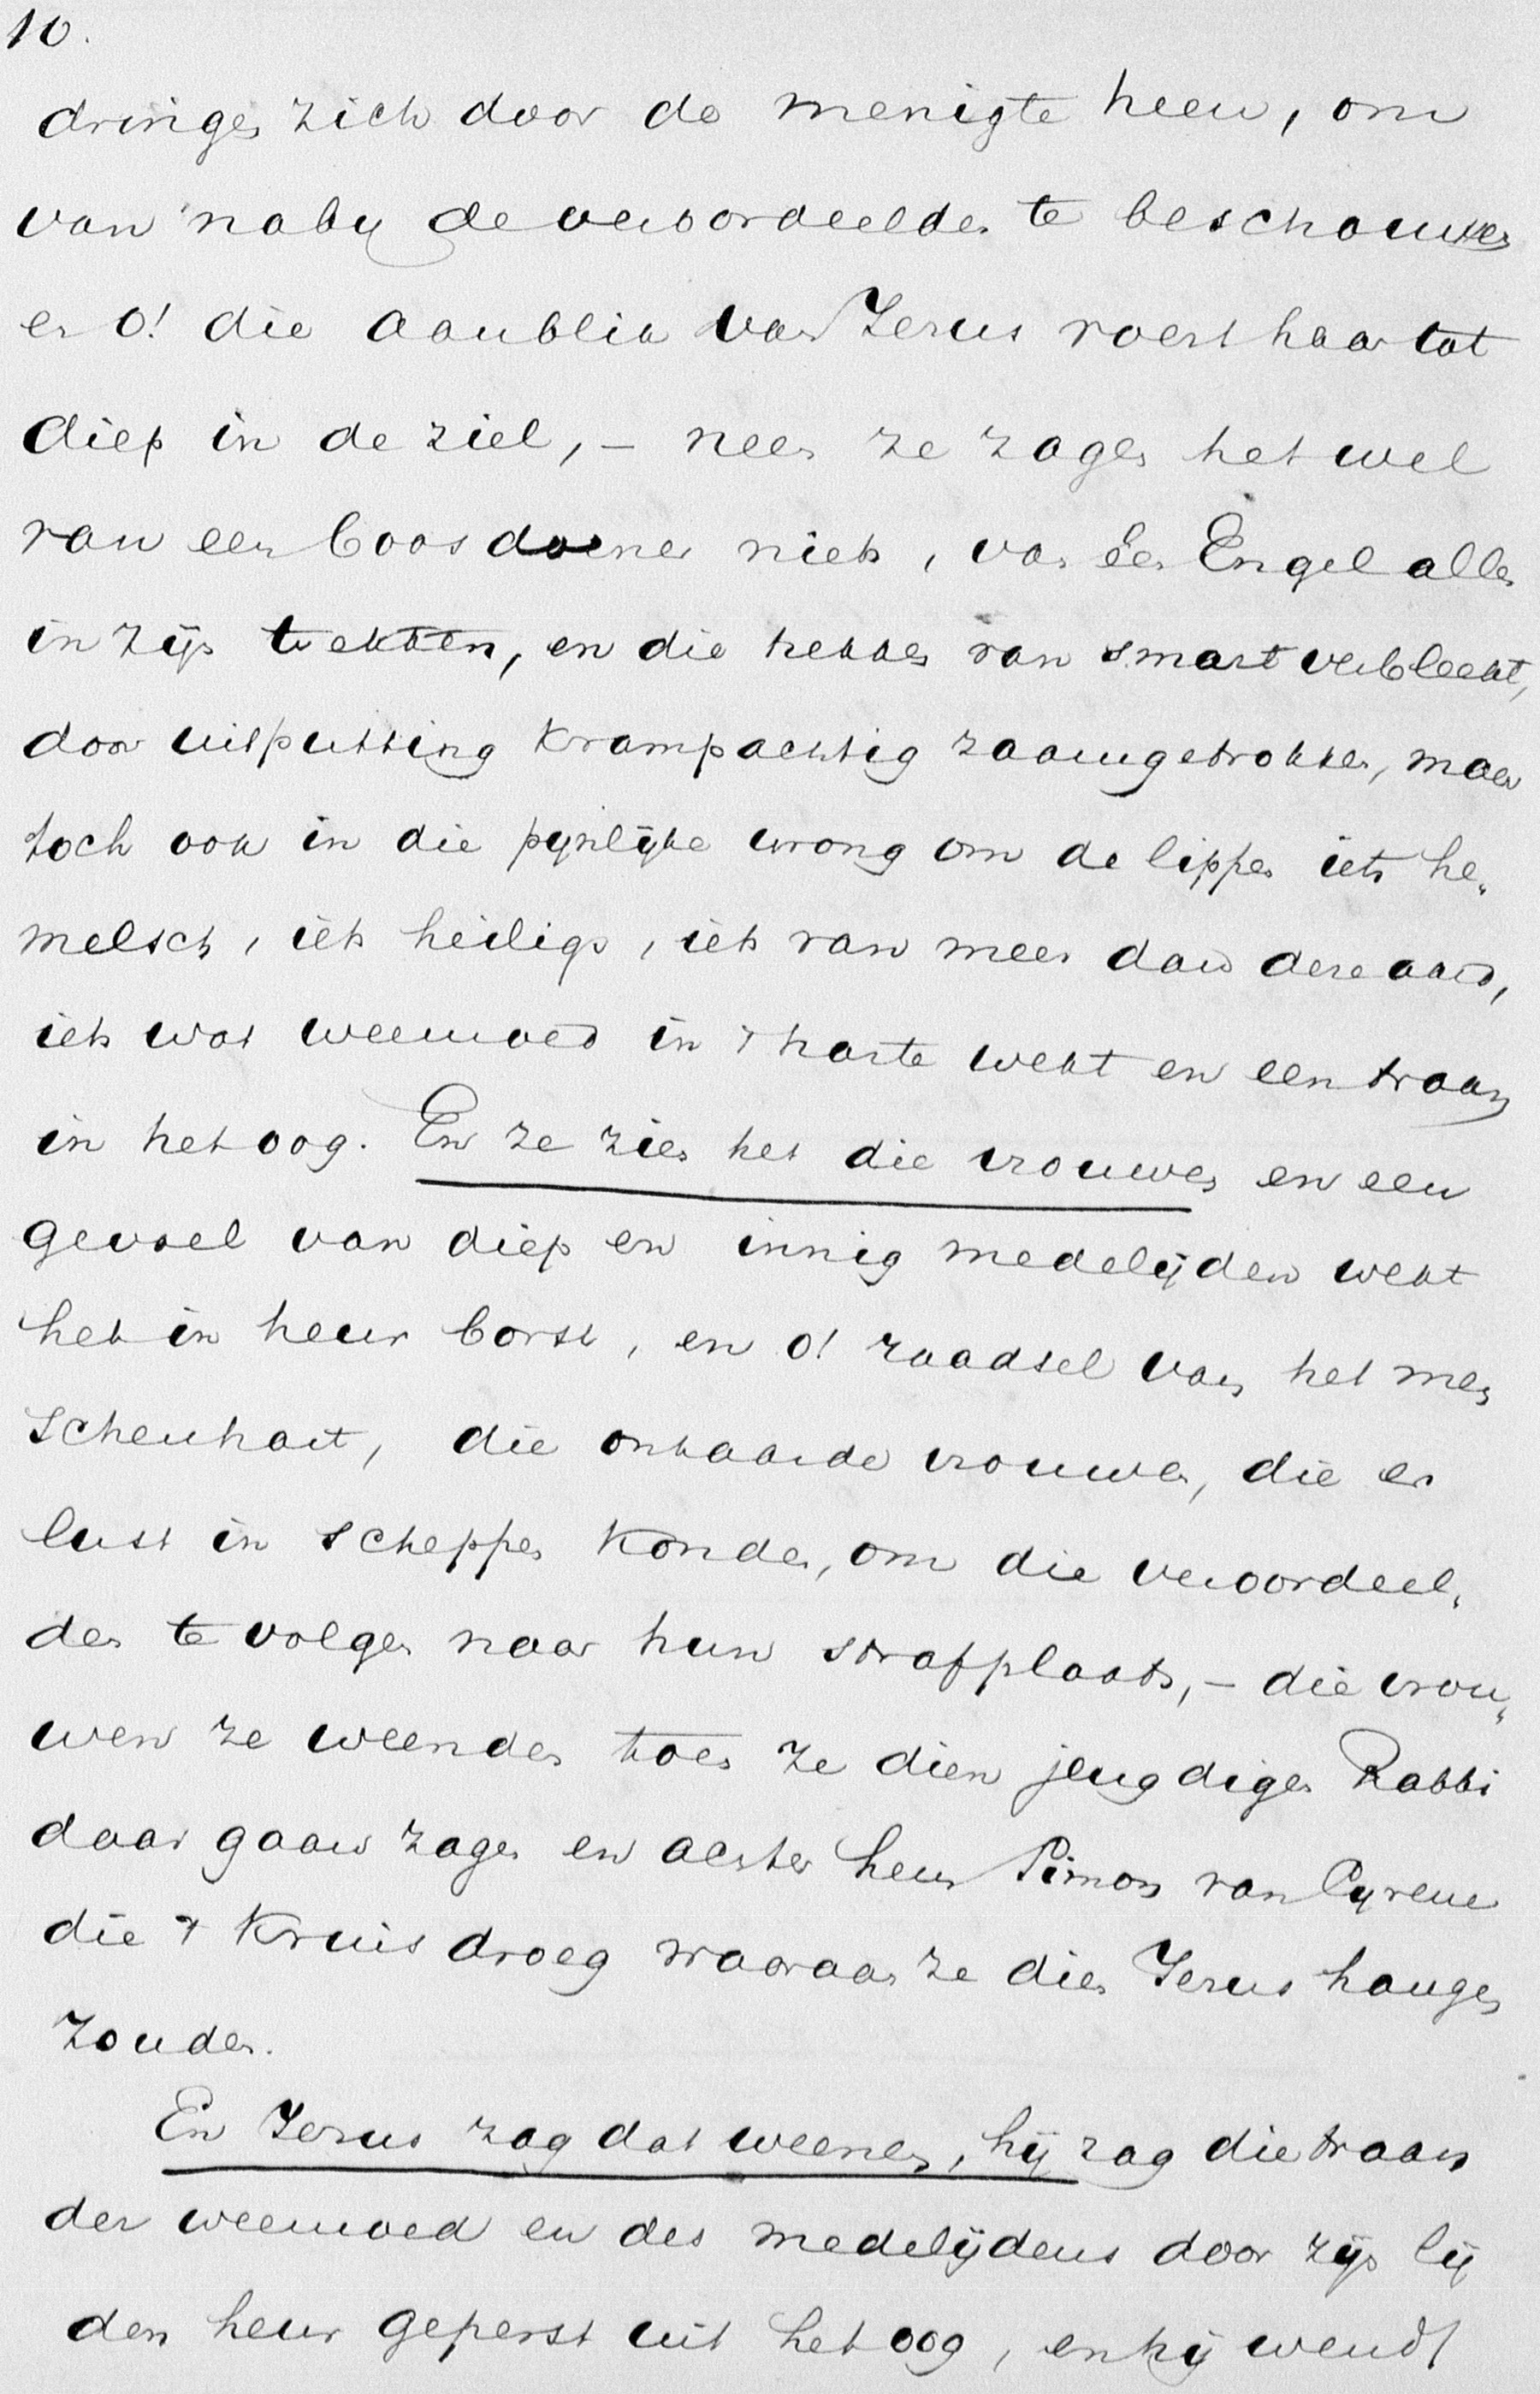 10.
dringen zich door de menigte heen, om
van naby de veroordeelden te beschouwen
en o! die aanblik van Jezus roert haar tot
diep in de ziel, – neen ze zagen het wel
van een boosdoener niets, van een Engel alles
in zijn trekken, en die trekken van smart verbleekt,
door uitputting krampachtig zaamgetrokken, maar
toch ook in die pynlyke wrong om de lippen iets he„
melsch, iets heiligs, iets van meer dan deze aard,
iets wat weemoed in 't harte wekt en een traan
in het oog. En ze zien het die vrouwen en een
gevoel van diep en innig medelijden wekt
het in heur borst, en o! raadsel van het men
schenhart, die ontaarde vrouwen, die er
lust in scheppen konden, om die veroordeel„
den te volgen naar hun strafplaats, – die vrou„
wen ze weenden toen ze dien jeugdigen Rabbi
daar gaan zagen en achter hem Simon van Cyrene
die 't kruis droeg waaraan ze dien Jezus hangen
zouden.
En Jezus zag dat weenen, hij zag die traan
der weemoed en des medelijdens door zijn lij
den heur geperst uit het oog, en hij wendt